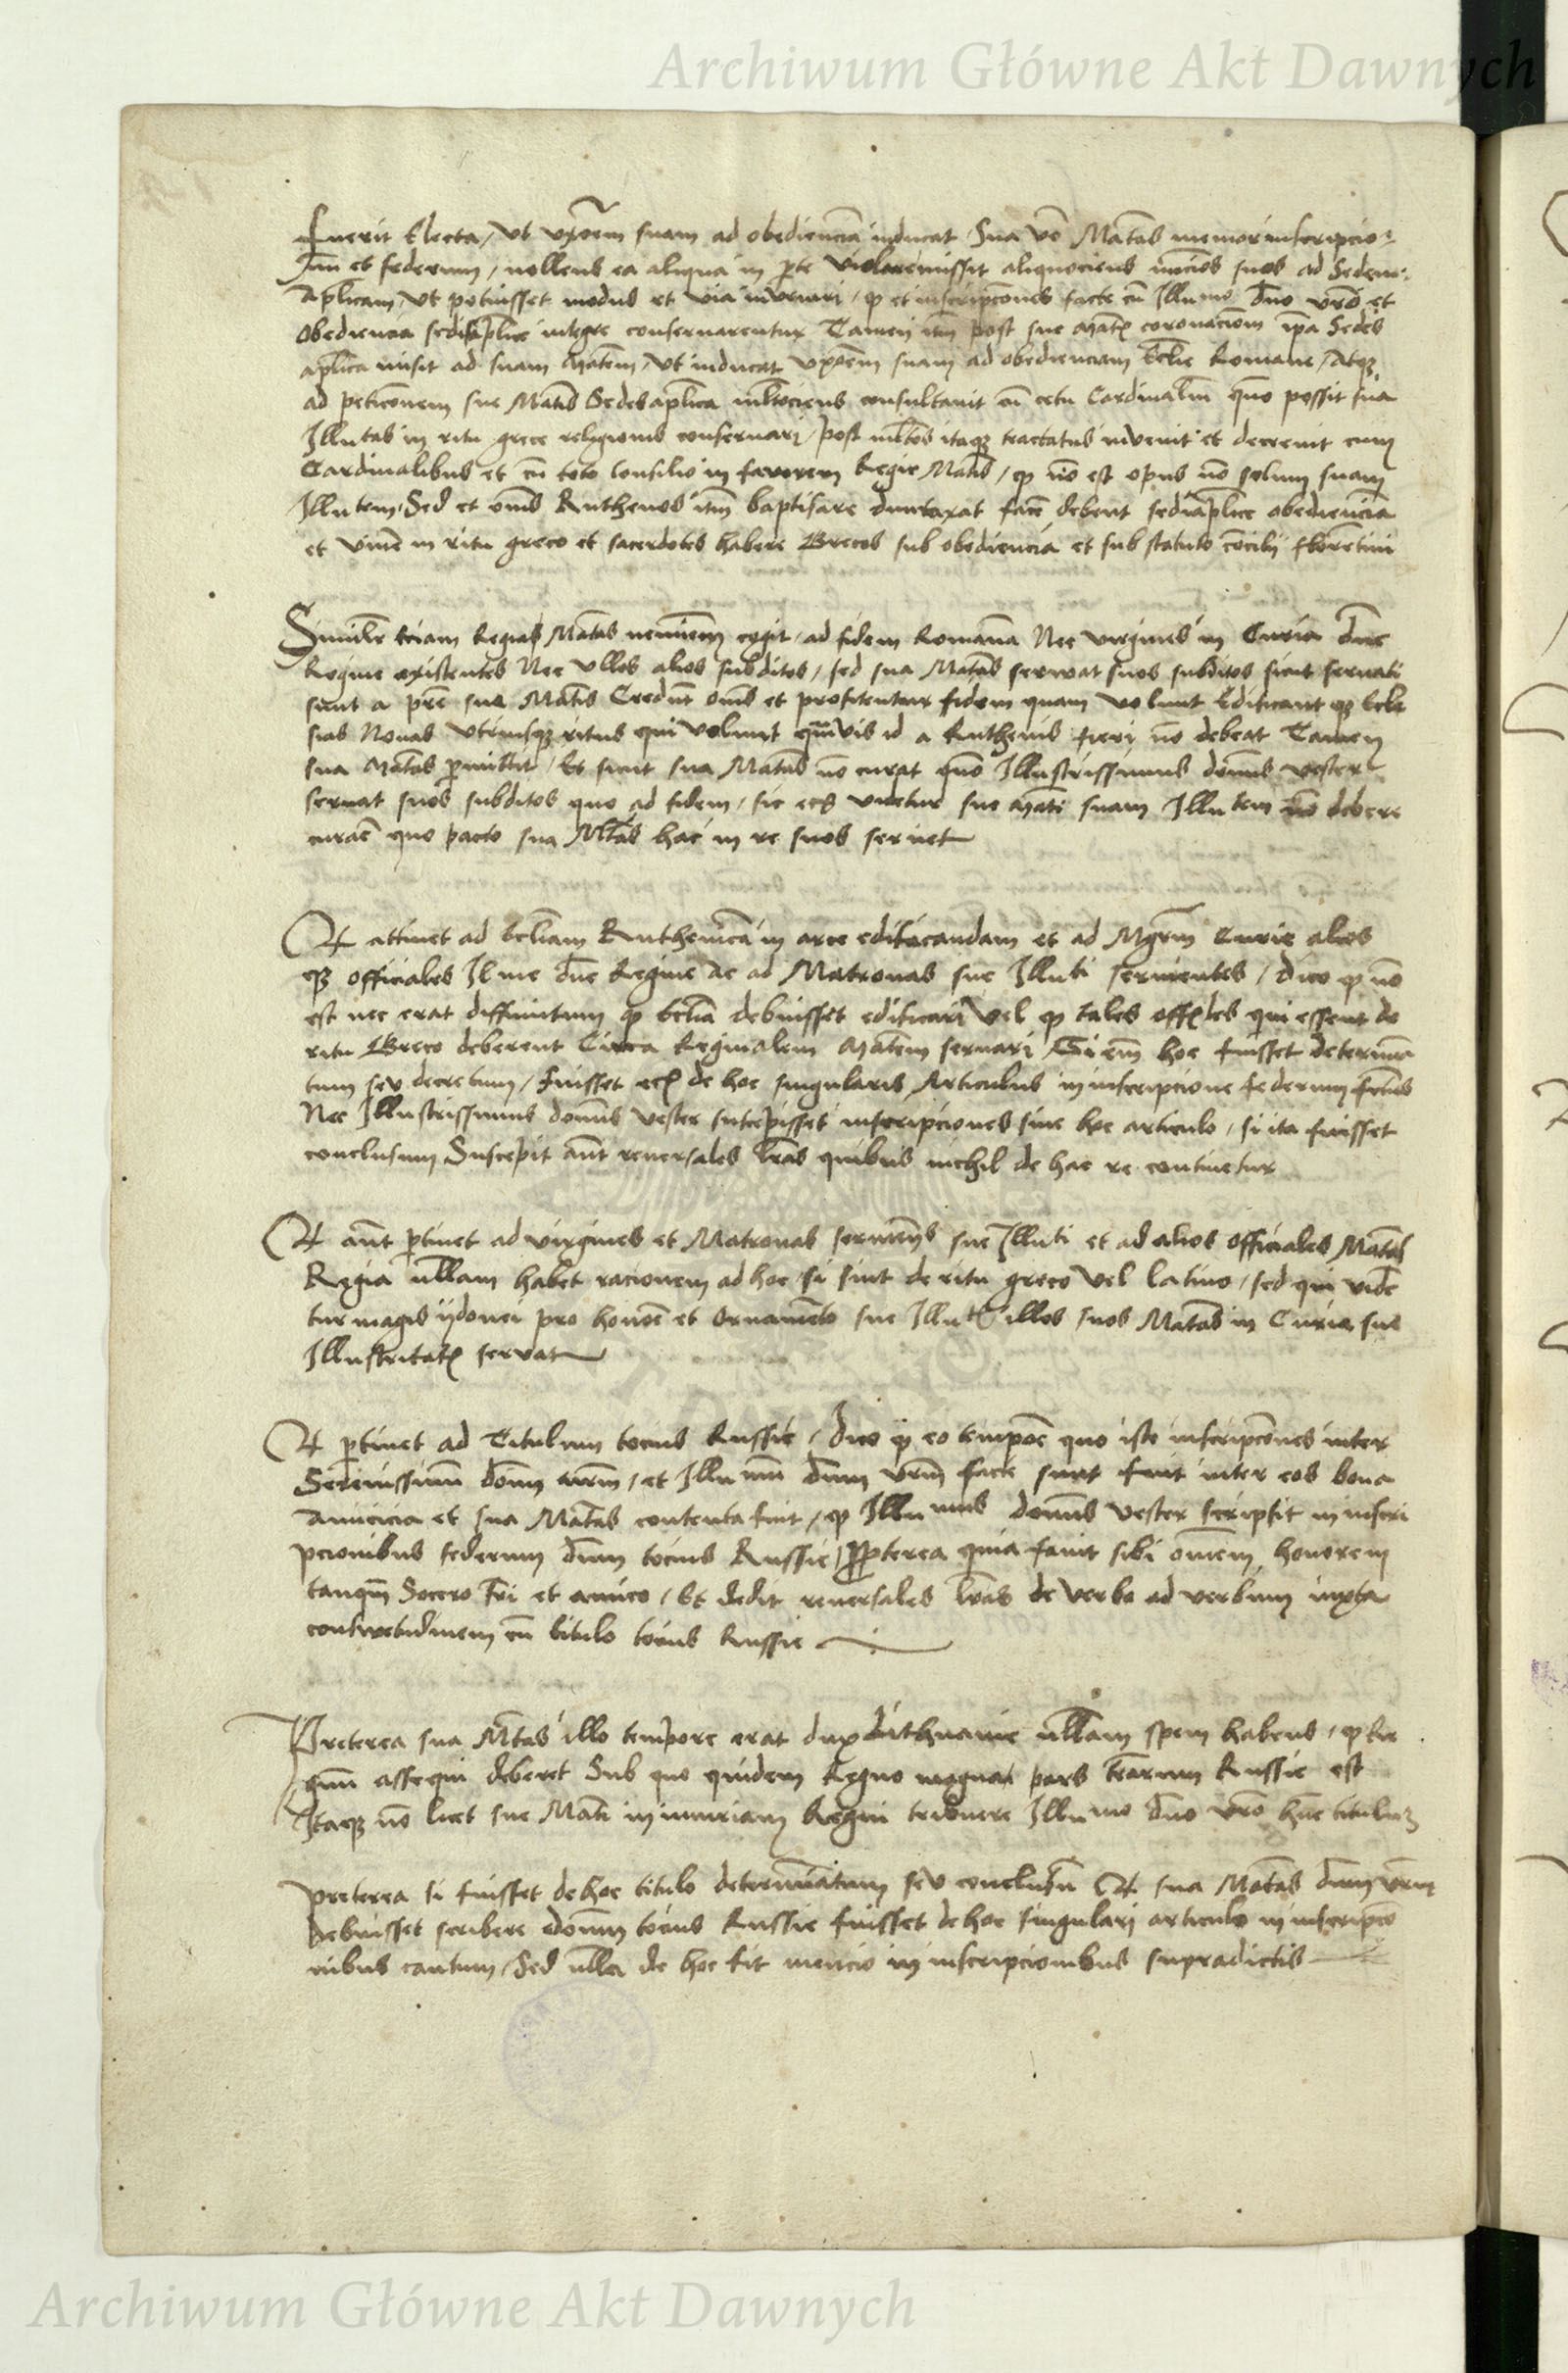 Archiwum Główne Akt Dawnych
fuerit Electa, Vt vxorem suam ad obedienciā inducat. Sua vo Maṫas memor inscripcio:
num et federum, nollens ea aliqua in pte violare missit aliquociens nūcios suos ad Sedem:
Aplicam, Vt potuisset modus et via inveniri, qp et inscripcōnes facte cū Illu mo dno vrō et
obediencia sedis aplice integre conservarentur Tamen itm post sue Maṫ coronaciom ipa Sedes
aplica misit ad suam Maṫem, Vt inducat vxorem suam ad obedienciam Eccłie Romane, Atqꝫ
ad peticōnem sue Maṫis Sedes aplica mltociens consultavit cū cetu Cardinaliū quō possit sua
Illu tas in ritu grece religionis conservari, post mltos itaqꝫ tractatus invenit et decrevit cum
Cardinalibus et cū toto Consilio in favorem Regie Maṫis, qp nō est opus nō solum suam
Illu tem, Sed et omēs Ruthenos itm baptisare dumtaxat facē debent sedi aplice obedienciā
et vivē in ritu greco et sacerdotes habere Grecos sub obediencia et sub statuto cōcilii florētini
Similr eciam Regia Maṫas neminem cogit, ad fidem Romanā Nec virgines in Curia dne
Regine existentes Nec vllos alios subditos, sed sua Maṫas servat suos subditos sicut servati
sunt a prē sue Maṫis Credūt omēs et profitentur fidem quam volunt Edificant qꝫ Eccle
sias Novas vtriusqꝫ ritus qui volunt qmvis id a Ruthenis fieri nō debeat Tamen
sua Maṫas pmittit, Et sicut sua Maṫas nō curat quō Illustrissimus domns vester
servat suos subditos quo ad fidem, sic eciā videtur sue Maṫi suam Illu tem nō debere
curarē quo pacto sua Mṫas hac in re suos servet
Qt attinet ad eccliam Ruthenicā in arce edificandam et ad Mgrm Curie alios
qꝫ officiales Il me dne Regine Ac ad Matronas sue Illu ti servientes, dico qp nō
est nec erat diffinitum qp eccliā debuisset edificari vel qp tales offles qui essent de
ritu Greco deberent Circa Reginalem Maṫem servari Si enim hoc fuisset determina
tum seu decretum, fuisset eciā de hoc singularis Articulus in inscripcione federum fctus
Nec Illustrissimus domns vester suscepisset inscripciones sine hoc articulo, si ita fuisset
conclusum Suscepit aut reversales lras quibus nichil de hac re continetur
Qt aut ptinet ad virgines et Matronas servientes sue Illu ti et ad alios officiales Maṫas
Regia nullam habet racionem ad hoc, si sint de ritu greco vel latino, sed qui vidē
tur magis ydonei pro honorē et ornamēto sue Illu tis illos suos Maṫas in Curia sue
Illustritatis servat
Qt ptinet ad Titulum tocius Russie, dico qp eo temporē quo iste inscripcōnes inter
Serenissimū domn nrm, et Illu mū dnm vrm facte sunt fuit inter eos bona
Amicicia et sua Maṫas contenta fuit, qp Illu mus domns vester scripsit in inscri
pcionibus federum dnm tocius Russie, Propterea quia favit sibi omēm honorem
tanqm Socero fri et amico, Et dedit reversales lras de verbo ad verbum iuxta
conswetudinem cū titulo tocius Russie
Preterea sua Mṫas illo tempore erat dux Lithuanie nullam spem habens, qp Re
gnū assequi deberet Sub quo quidem Regno magna pars terrarum Russie est
Itaqꝫ nō licet sue Maṫi in iniuriam Regni tribuere Illu mo dno vro hūc titulum
preterea si fuisset de hoc titulo determinatum seu conclusū Qt sua Maṫas dnm vrm
debuisset scribere domn tocius Russie fuisset de hoc singulari articulo in inscripcō
nibus cautum, Sed nulla de hoc fit mencio in inscripcionibus supradictis
Archiwum Główne Akt Dawnych